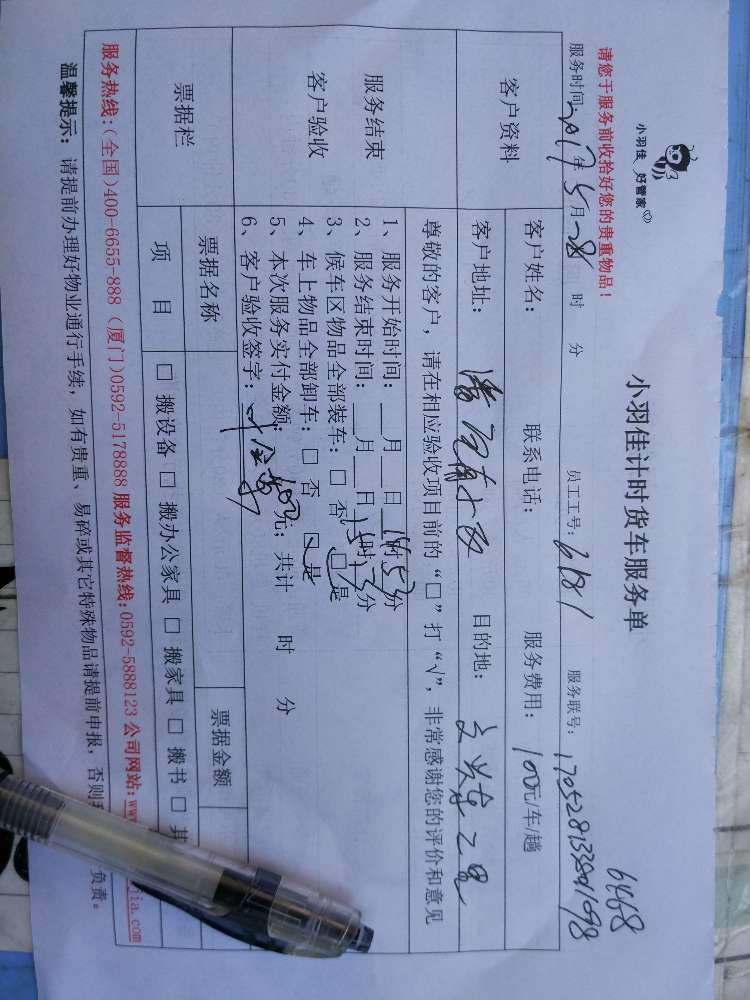 小羽佳 好管家
小羽佳计时货车服务单
6468
请您于服务前收拾好您的贵重物品！
服务时间：2017年5月28 时 分 员工工号：6181 服务联号：
客户资料 客户姓名： 联系电话： 服务费用：100元/车/趟
客户地址： 目的地：
服务结束
客户验收
尊敬的客户，请在相应验收项目前的“□”打“√”，非常感谢您的评价和意见
1、服务开始时间：__月__日14时53分
2、服务结束时间：__月__日15时 分
3、候车区物品全部装车：□ 否 □ 是
4、车上物品全部卸车：□ 否 □ 是
5、本次服务实付金额：400元；共计 时 分
6、客户验收签字：
票据栏 票据名称 票据金额
项 目 □ 搬设备 □ 搬办公家具 □ 搬家具 □ 搬书 □ 其
服务热线：(全国)400-6655-888 (厦门)0592-5178888 服务监督热线：0592-5888123 公司网站：www jia.com
温馨提示：请提前办理好物业通行手续，如有贵重、易碎或其它特殊物品请提前申报，否则 负责。